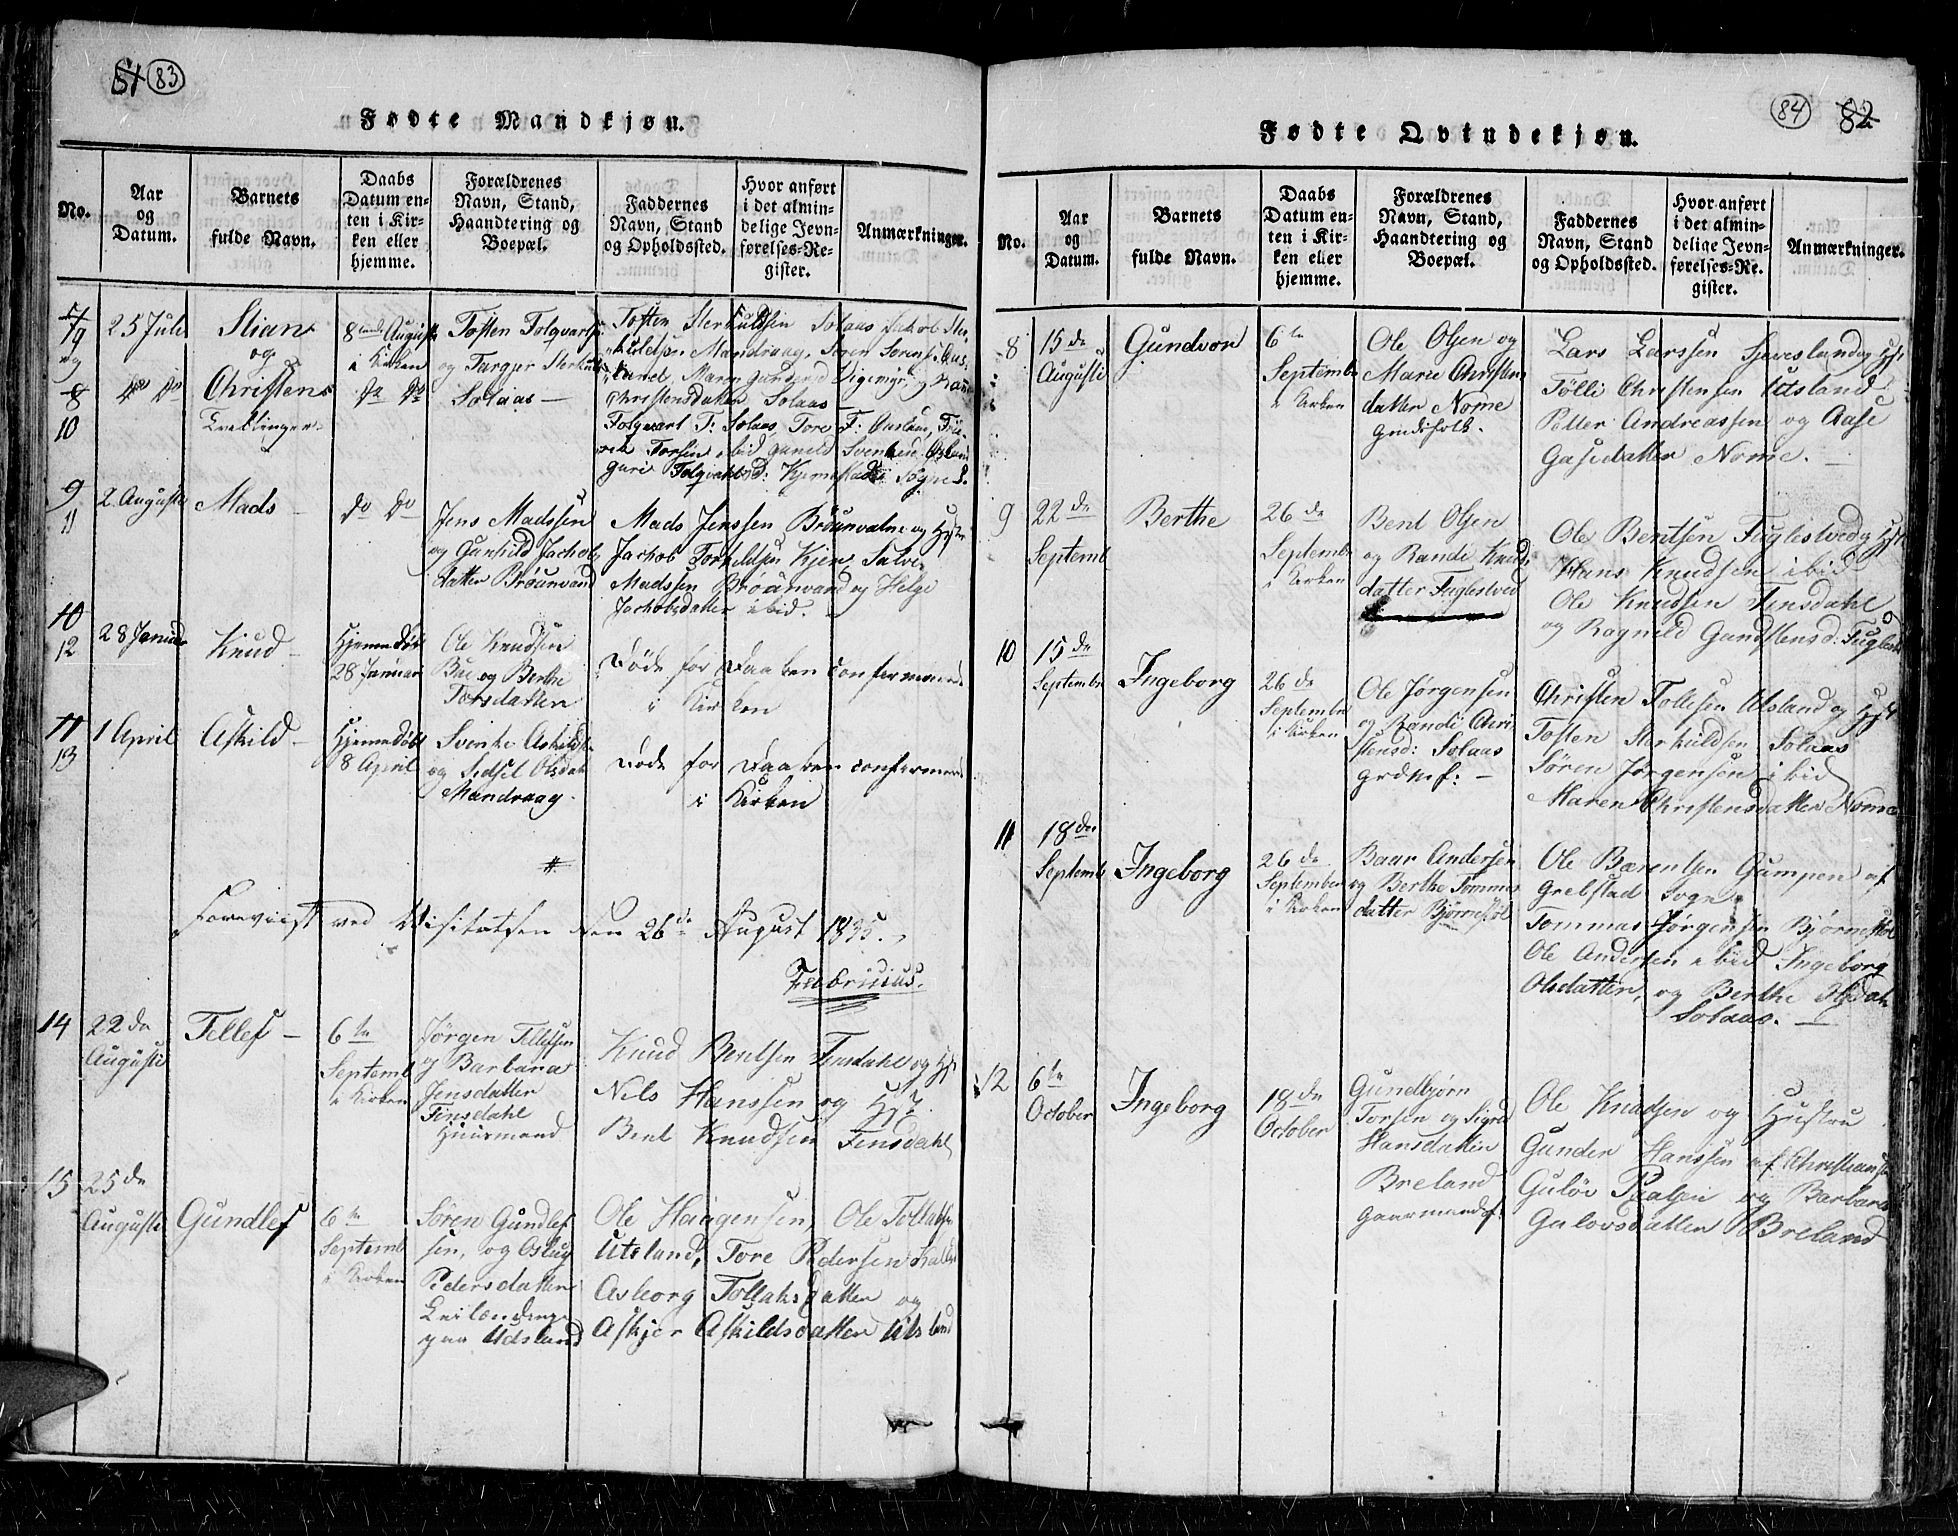 83
Fødte Mandkjøn.
No.
Aar
og
Datum.
Barnets
fulde Navn.
Daabs
Datum en-
ten i Kir-
ken eller
hjemme.
Forældrenes
Navn, Stand,
Haandtering og
Boepæl.
Faddernes
Navn, Stand
og Opholdssted.
Hvor anført
i det almin-
delige Jevn-
førelses-Re-
gister.
Anmærkninger.
7/9
og
8
10
25 Juli
do do
Stian
og
Christen
8 August
i Kirken
do do
Tosten Tolgvarts
og Targier
Solaas —
Tosten Solaas Jakob
Mandraag, Søren
Maren Digemyr, og
Christensdatter Solaas
Folqvart T: Solaas, Tore F:
Torsen ibid Svens
Guri Folqvahtsd: Sogn
9
11
2 Augusti
Mads —
do do
Jens Madssen
og Gunhild Jachobs
datter Brøunvand
Mads Jenssen og Hst
Jachob Torkeldsen Kjær, Salve
Madssen Brøunvand og Helge
Jachobsdatter ibid. —
10
12
28 Januar
Knud —
Hjemmedøbt
28 Januar
Ole Knudsen
Bue og Berthe
Torsdatter
Døde for Daaben confermerede
i Kirken
11
13
1 April
Askild —
Hjemmedøbt
8 April
Svenke Askilds
og Sidsel Olsdat
Mandraag.
Døde for Daaben confermerede
i Kirken
Foreviist ved Visitatsen den 26de August 1835.
Fabricius.
14
22de
Augusti
Tellef —
6te
Septemb
i Kirken
Jørgen Tellefsen
og Barbara
Jensdatter
Finsdahl
Huusmand
Knud Bentsen Finsdahl og Hst
Nils Hanssen og Hst
Bent Knudsen Finsdahl
15
25de
Augusti
Gundlef
6te
Septemb
i Kirken
Søren Gundlef
sen, og Aslaug
Pedersdatter
Leilænding
paa Udsland
Ole Haagensen, Ole Tollaksen
Utsland, Tore Pedersen
Asborg Tollaksdatter og
Askjer Askildsdatter Utsland
84 82
Fødte Qvindekjøn.
No.
Aar
og
Datum.
Barnets
fulde Navn.
Daabs
Datum en-
ten i Kir-
ken eller
hjemme.
Forældrenes
Navn, Stand,
Haandtering og
Boepæl.
Faddernes
Navn, Stand
og Opholdssted.
Hvor anført
i det almin-
delige Jevn-
førelses-Re-
gister.
Anmærkninger.
8
15de
Augusti
Gundvor
6te
Septembr
i Kirken
Ole Olsen og
Marie Christens
datter Nome
Lars Larssen og Hst
Tølli Christensen Utsland
Petter Andreassen og Aase
Gasedatter Nome. —
9
22de
Septemb
Berthe
26de
Septembr
i Kirken
Bent Olsen
og Randi Knuds
datter Fuglestved
Ole Bentsen Fuglestved og Hst
Hans Knudsen ibid
Ole Knudsen Finsdahl
og Ragnild Gundstensd: Fuglest
10
15de
Septembr
Ingeborg
26de
Septembr
i Kirken
Ole Jørgensen
og Randi Chri
stensd: Solaas
grdmf: —
Christen Tollesen Utsland og Hst
Tosten Sterkuldsen Solaas
Søren Jørgensen ibid
Maren Christensdatter Nome
11
18de
Septemb
Ingeborg
26de
September
i Kirken
Baar Andersen
og Berthe Tommes
datter Bjørnestøl
Ole Bærentsen Gumpen af
Grebstad Sogn
Tommas Jørgensen Bjørnestøl
Ole Andersen ibid Ingeborg
Olsdatter, og Berthe
Solaas. —
12
6te
October
Ingeborg
18de
October
Gundbjørn
Torsen og Sigrid
Hansdatter
Breland
Gaarmandsf:
Ole Knudsen og Hustru
Gunder Hanssen af Christians
Guløv Paalsen og Barbara
Guløvsdatter Breland